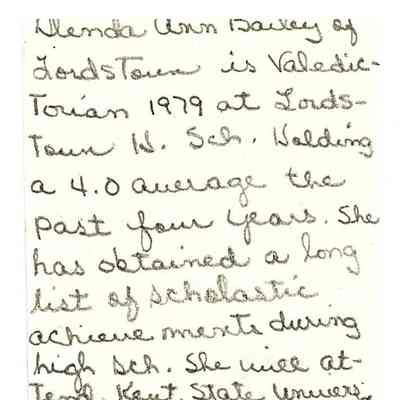 Glenda Ann Bailey of
Lordstown is Valedic-
Torian 1979 at Lords-
Town H. Sch. Holding
a 4.0 average the
past four years. She
has obtained a long
list of scholastic
achievements during
high sch. She will at-
Tend Kent State Univers